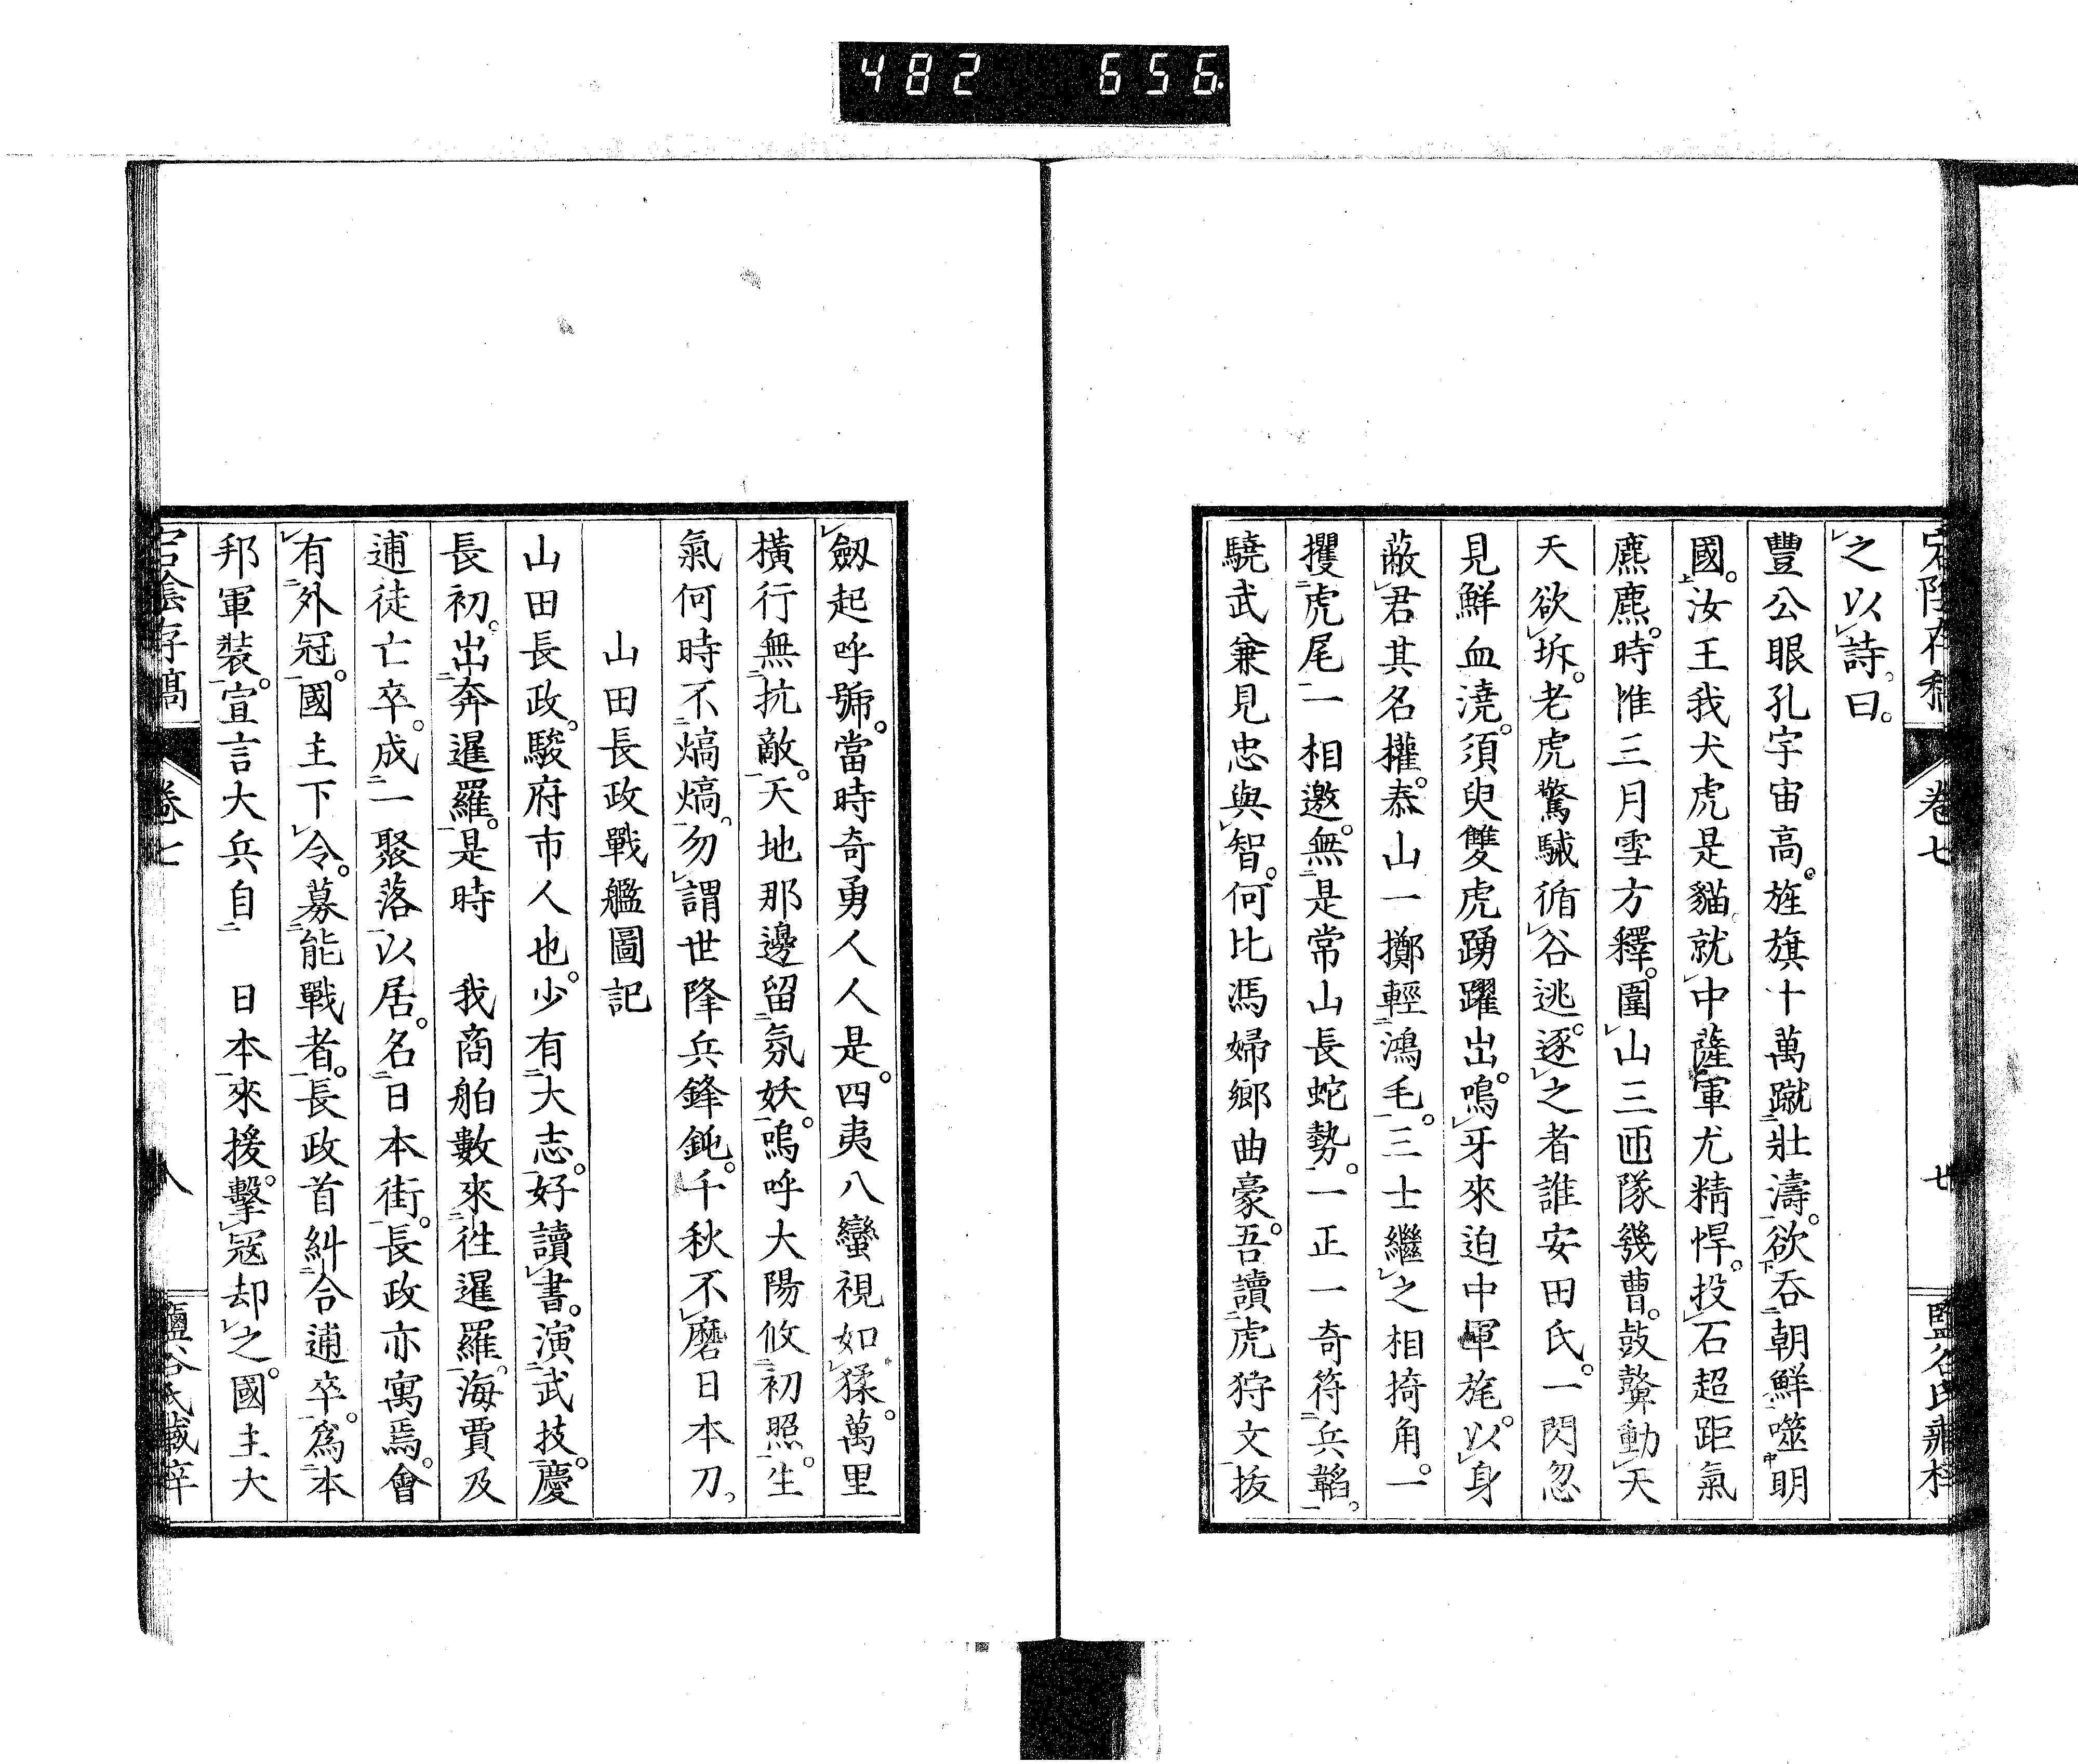 482 656
宕陰存稿 卷七 廿 鹽谷氏藏梓
之以詩曰。
豐公眼孔宇宙高。旌旗十萬蹴壯濤。欲吞朝鮮噬明
國。汝王我犬虎是貓。就中薩軍尤精悍。投石超距氣
麃麃。時惟三月雪方釋。圍山三匝隊幾曹。鼓鼙動天
天欲坼。老虎驚駴循谷逃。逐之者誰安田氏。一閃忽
見鮮血澆。須臾雙虎踴躍出。鳴牙來迫中軍旄。以身
蔽君其名權。泰山一擲輕鴻毛。三士繼之相掎角。一
攫虎尾一相邀。無是常山長蛇勢。一正一奇符兵韜。
驍武兼見忠與智。何比馮婦鄉曲豪。吾讀虎狩文拔
劔起呼號。當時奇勇人人是。四夷八蠻視如猱。萬里
橫行無抗敵。天地那邊留氛妖。嗚呼大陽攸初照。生
氣何時不熇熇。勿謂世降兵鋒鈍。千秋不磨日本刀。
山田長政戰艦圖記
山田長政。駿府市人也。少有大志。好讀書。演武技。慶
長初。出奔暹羅。是時 我商舶數來徃暹羅。海賈及
逋徒亡卒。成一聚落以居。名日本街。長政亦寓焉。會
有外冦。國主下令。募能戰者。長政首糾合逋卒。爲本
邦軍裝。宣言大兵自 日本來援。擊冦却之。國主大
宕陰存稿 卷七 鹽谷氏藏梓